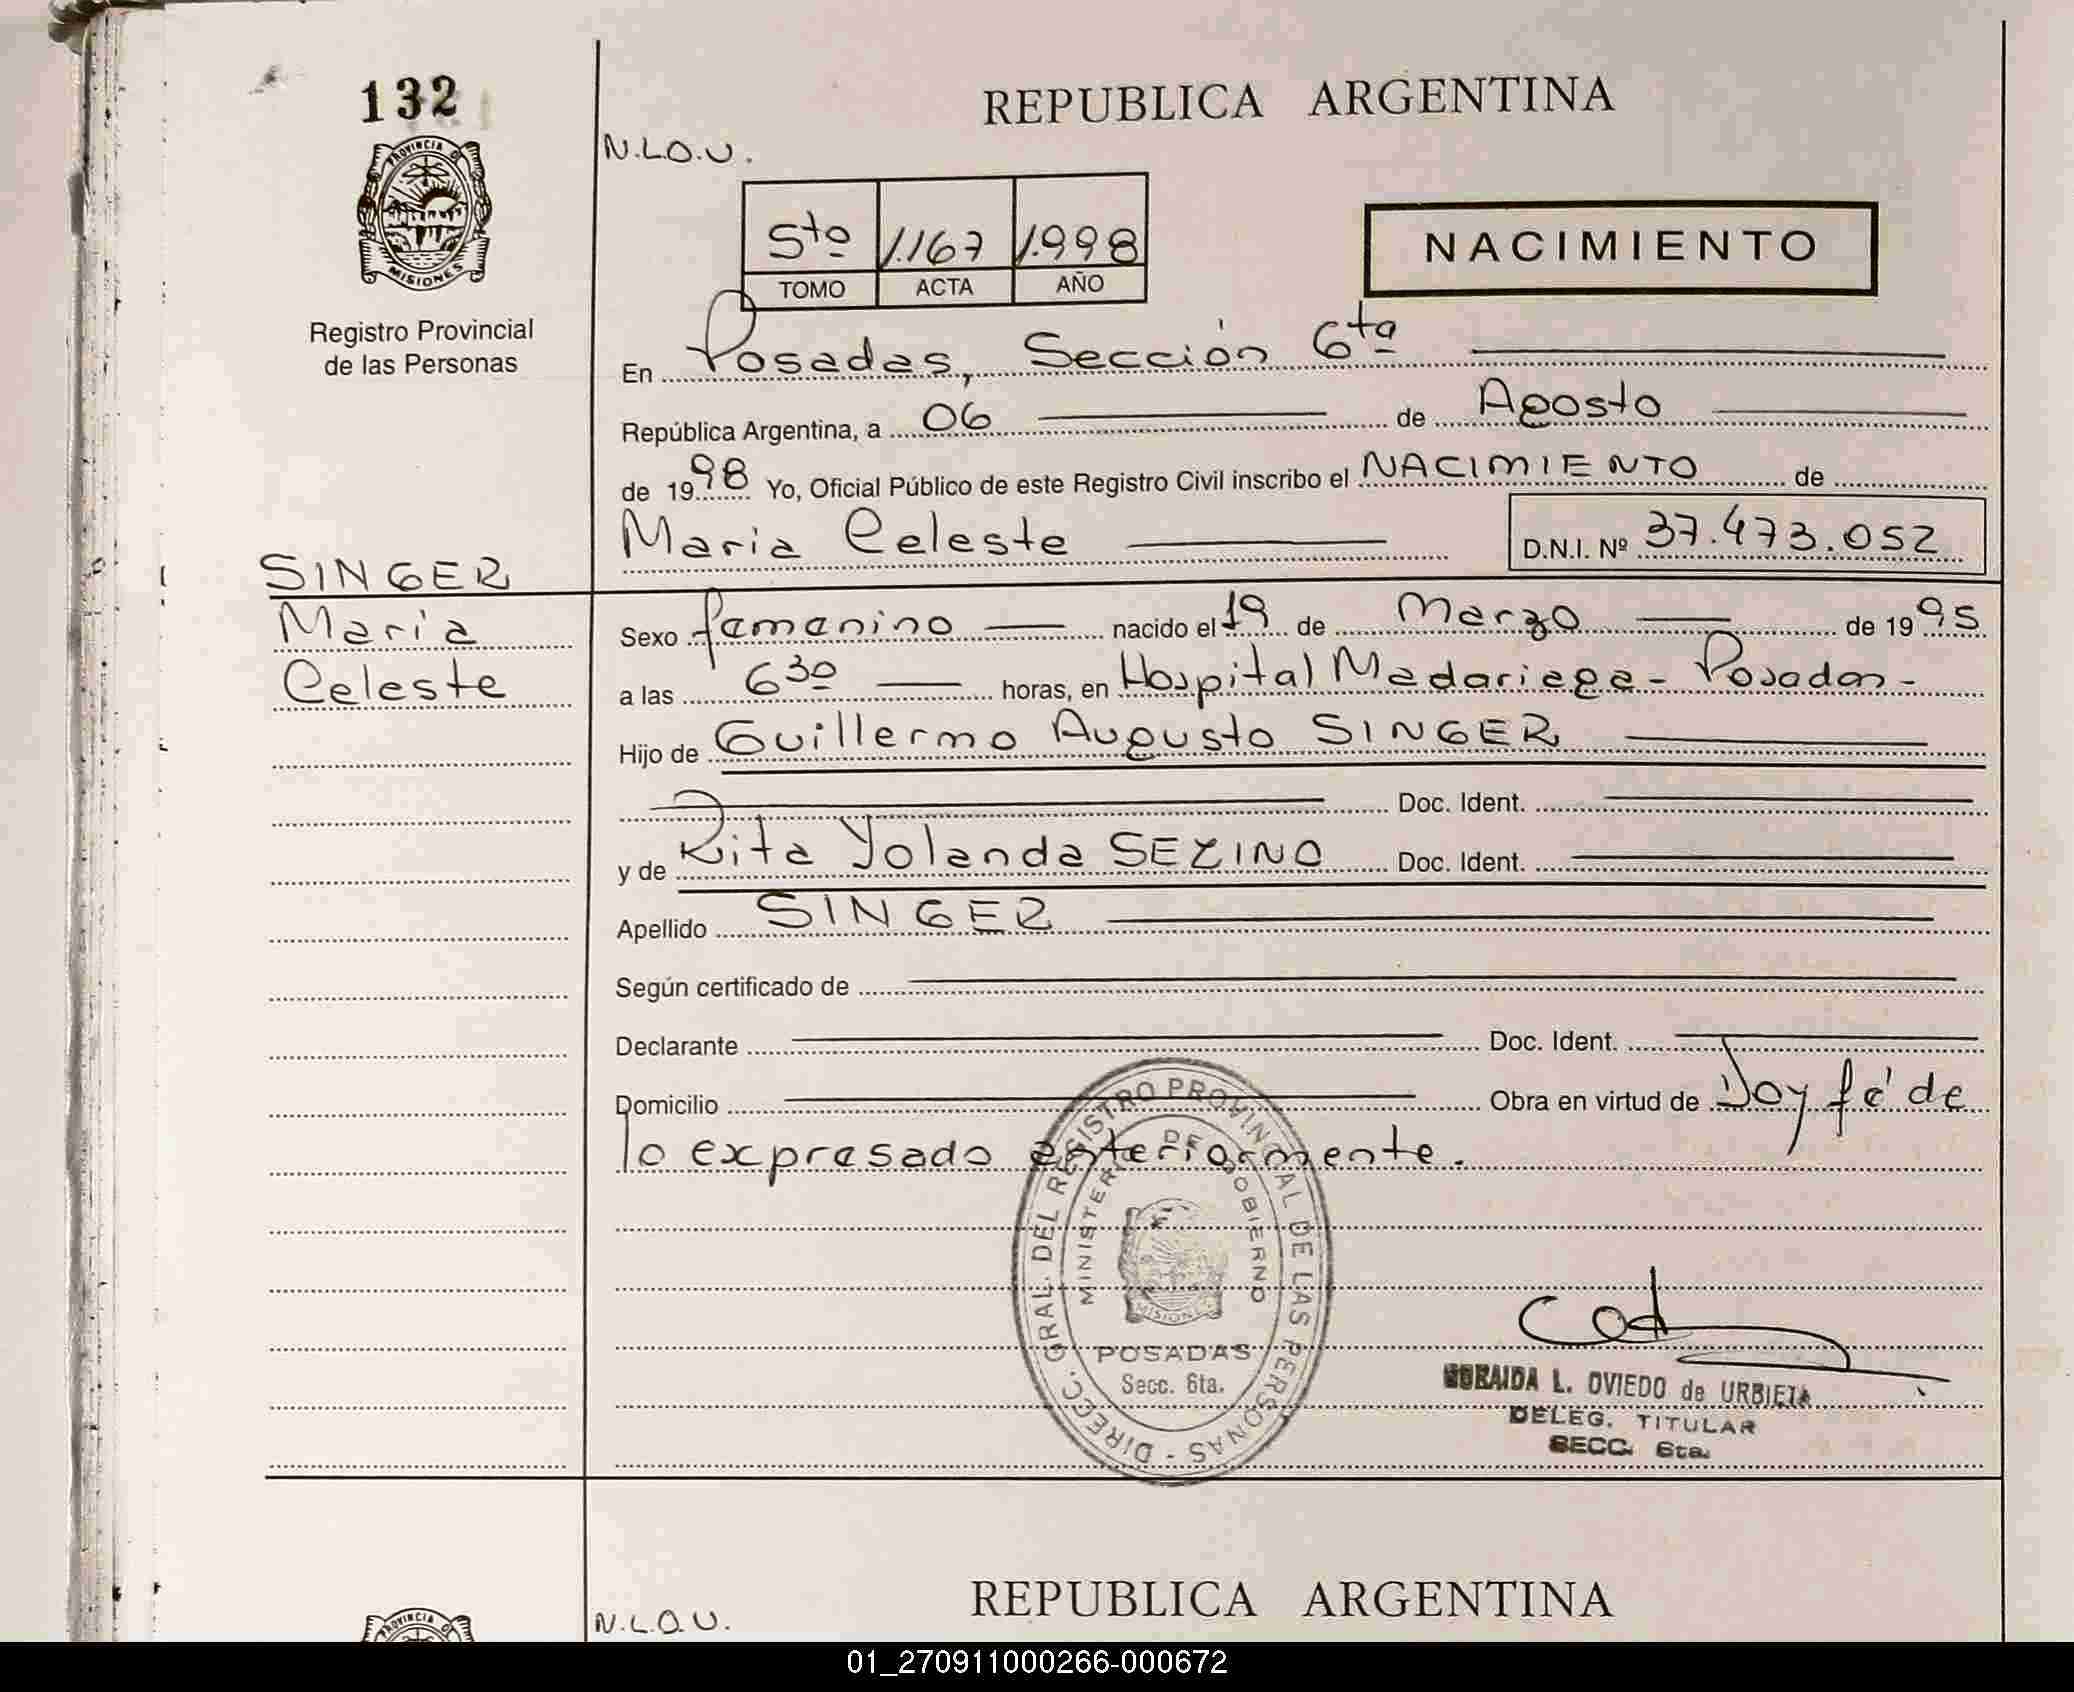 132
REPUBLICA ARGENTINA
PROVINCIA DE
MISIONES
N.L.O.U.
5to 1.167 1.998
TOMO ACTA AÑO
NACIMIENTO
Registro Provincial
de las Personas
En Posadas, Sección 6ta
República Argentina, a 06 de Agosto
de 1998 Yo, Oficial Público de este Registro Civil inscribo el NACIMIENTO de
Maria Celeste D.N.I. Nº 37.473.052
SINGER
Maria
Celeste
Sexo femenino nacido el 19 de Marzo de 1995
a las 630 horas, en Hospital Madariaga - Posadas -
Hijo de Guillermo Augusto SINGER
Doc. Ident.
y de Rita Yolanda SEZINO Doc. Ident.
Apellido SINGER
Según certificado de
Declarante Doc. Ident.
Domicilio Obra en virtud de Doy fé de
lo expresado anteriormente.
DIRECC. GRAL. DEL REGISTRO PROVINCIAL DE LAS PERSONAS -
MINISTERIO DE GOBIERNO
MISIONES
POSADAS
Secc. 6ta.
L. OVIEDO de URBIETA
DELEG. TITULAR
SECC. 6ta.
REPUBLICA ARGENTINA
PROVINCIA
N.L.O.U.
01_270911000266-000672